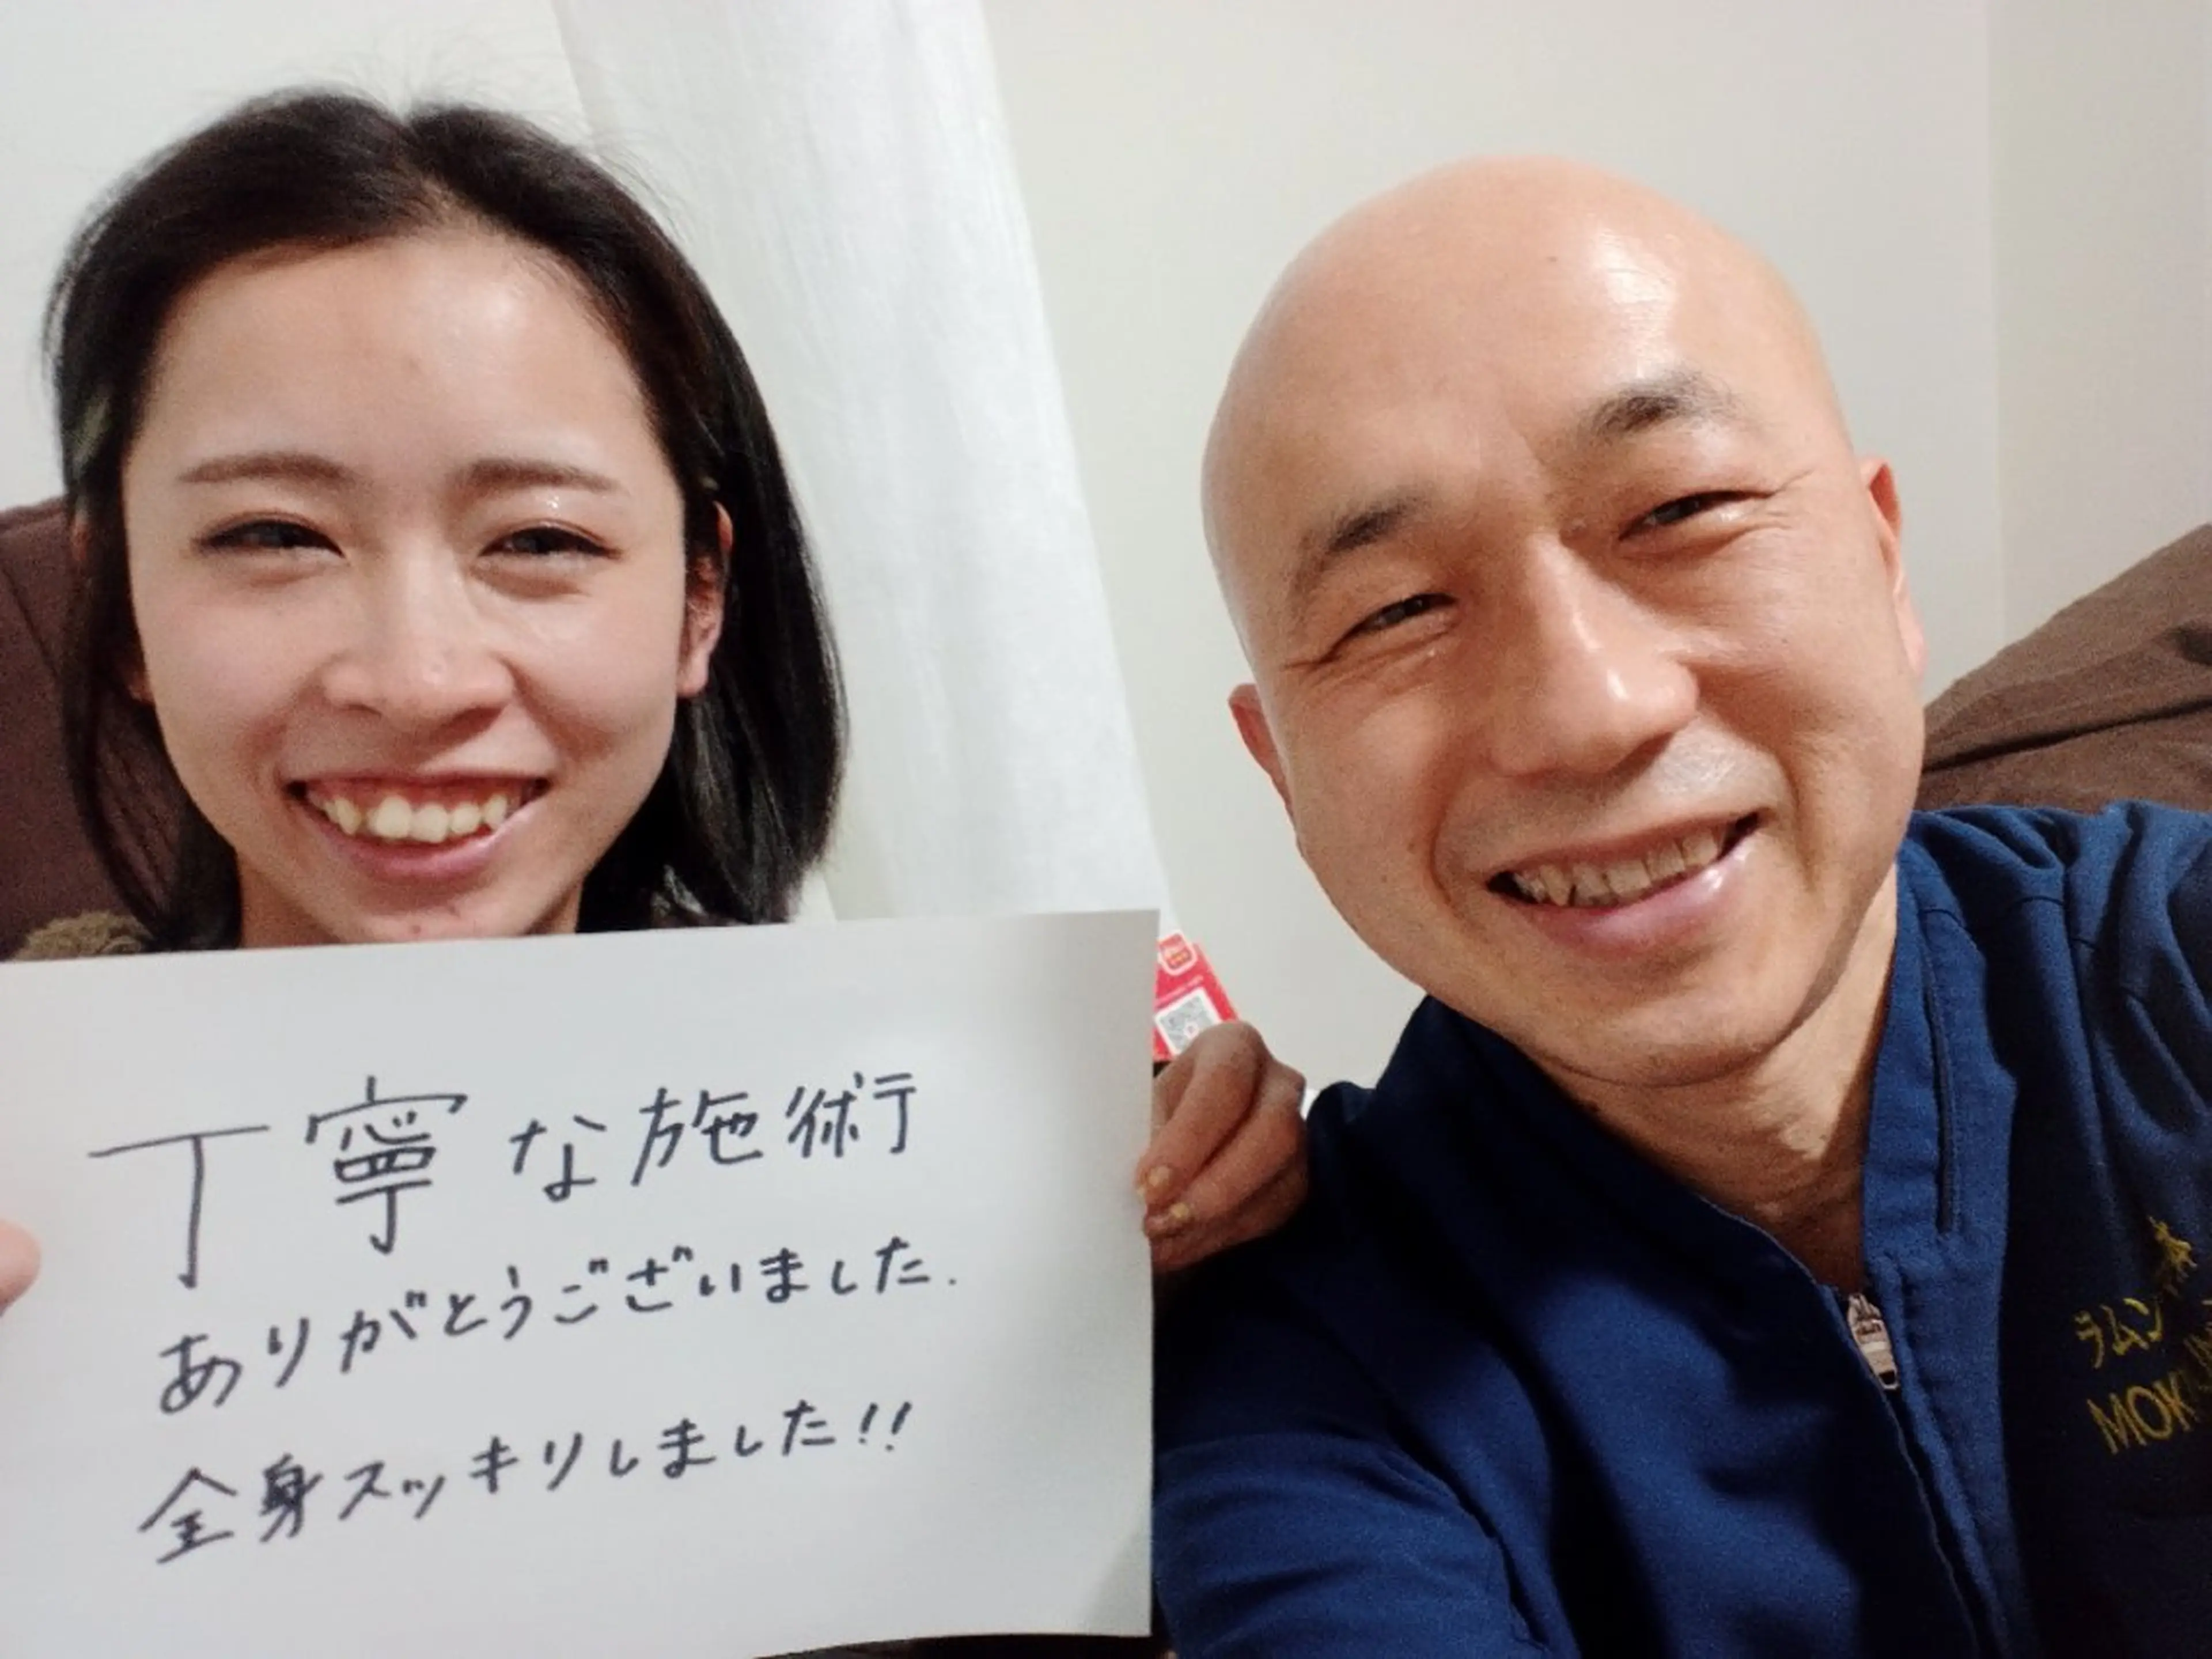 丁寧な施術
ありがとうございました.
全身スッキリしました!!
ラムン
MOK